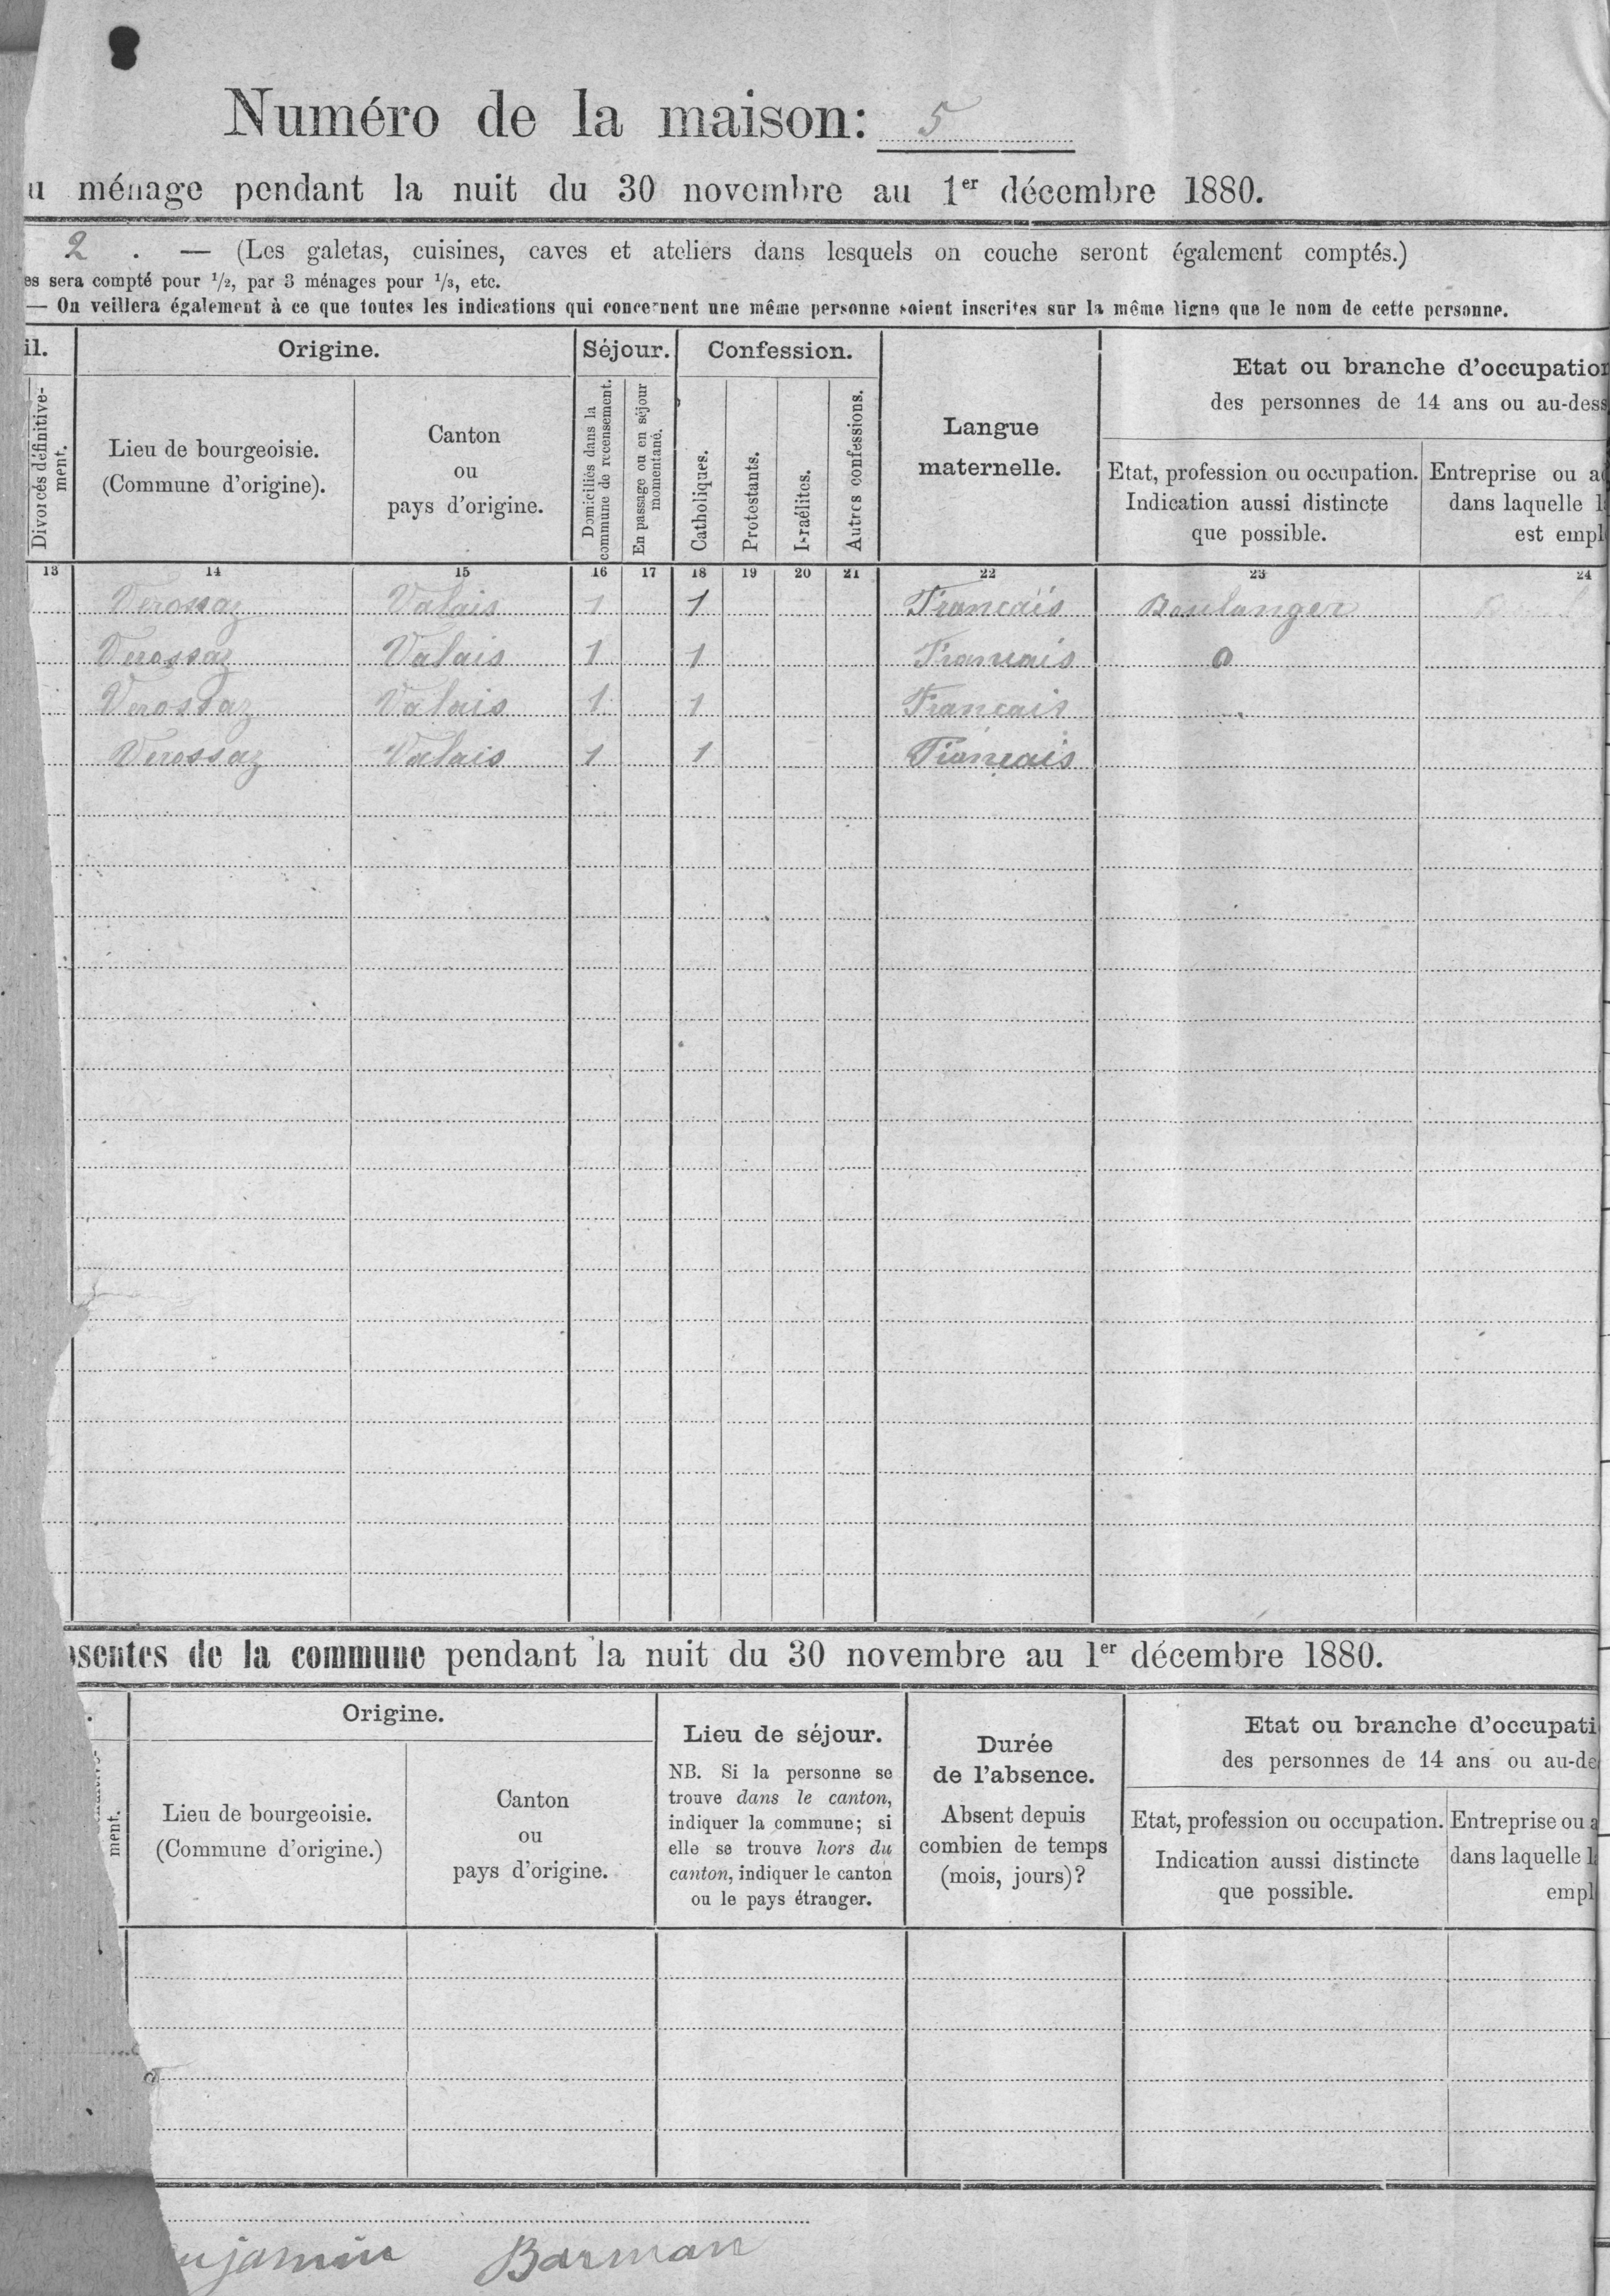 Numéro de la maison: 5
u ménage pendant la nuit du 30 novembre au 1er décembre 1880.
2 . — (Les galetas, cuisines, caves et ateliers dans lesquels on couche seront également comptés.)
es sera compté pour 1/2, par 3 ménages pour 1/3, etc.
— On veillera également à ce que toutes les indications qui concernent une même personne soient inscrites sur la même ligne que le nom de cette personne.
il. Origine. Séjour. Confession. Langue maternelle. Etat ou branche d'occupation
des personnes de 14 ans ou au-dess
Divorcés définitive-
ment.
Lieu de bourgeoisie.
(Commune d'origine).
Canton
ou
pays d'origine.
Domiciliés dans la
commune de recensement.
En passage ou en séjour
momentané.
Catholiques.
Protestants.
Israélites.
Autres confessions.
Etat, profession ou occupation.
Indication aussi distincte
que possible.
Entreprise ou a
dans laquelle l
est empl
13 14 15 16 17 18 19 20 21 22 23 24
Verossaz Valais 1 1 Francais Boulanger
Verossaz Valais 1 1 Francais 0
Verossaz Valais 1 1 Francais
Verossaz Valais 1 1 Français
sentes de la commune pendant la nuit du 30 novembre au 1er décembre 1880.
Origine.
ment.
Lieu de bourgeoisie.
(Commune d'origine.)
Canton
ou
pays d'origine.
Lieu de séjour.
NB. Si la personne se
trouve dans le canton,
indiquer la commune; si
elle se trouve hors du
canton, indiquer le canton
ou le pays étranger.
Durée
de l'absence.
Absent depuis
combien de temps
(mois, jours)?
Etat ou branche d'occupati
des personnes de 14 ans ou au-de
Etat, profession ou occupation.
Indication aussi distincte
que possible.
Entreprise ou a
dans laquelle l
empl
njamin Barman